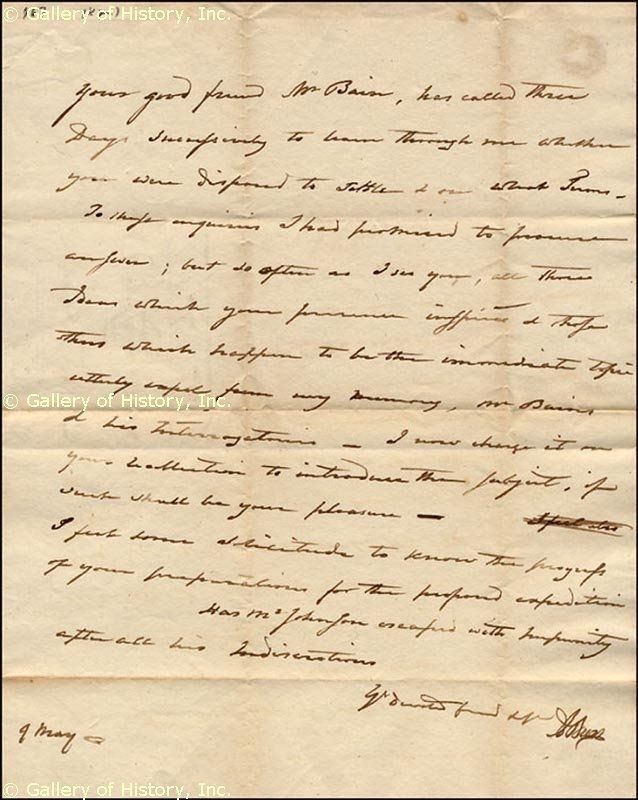 © Gallery of History, Inc.
your good friend Mr Bain, has called three
Days successively to learn through me whether
you were disposed to settle & on what Terms -
To these enquiries I had promised to procure
answer; but so often as I see you, all those
Ideas which your presence inspires & those
which happen to be the immediate topic
© Gallery of History, Inc.
utterly expel from my memory, Mr Bain
& his Interrogatories - I now charge it on
your recollection to introduce the subject, if
such shall be your pleasure -
I feel some solicitude to know the progress
of your preparations for the proposed expedition
Has Mr Johnson escaped with Impunity
after all his Indiscretions
Yr devoted friend & A Burr
9 May
© Gallery of History, Inc.